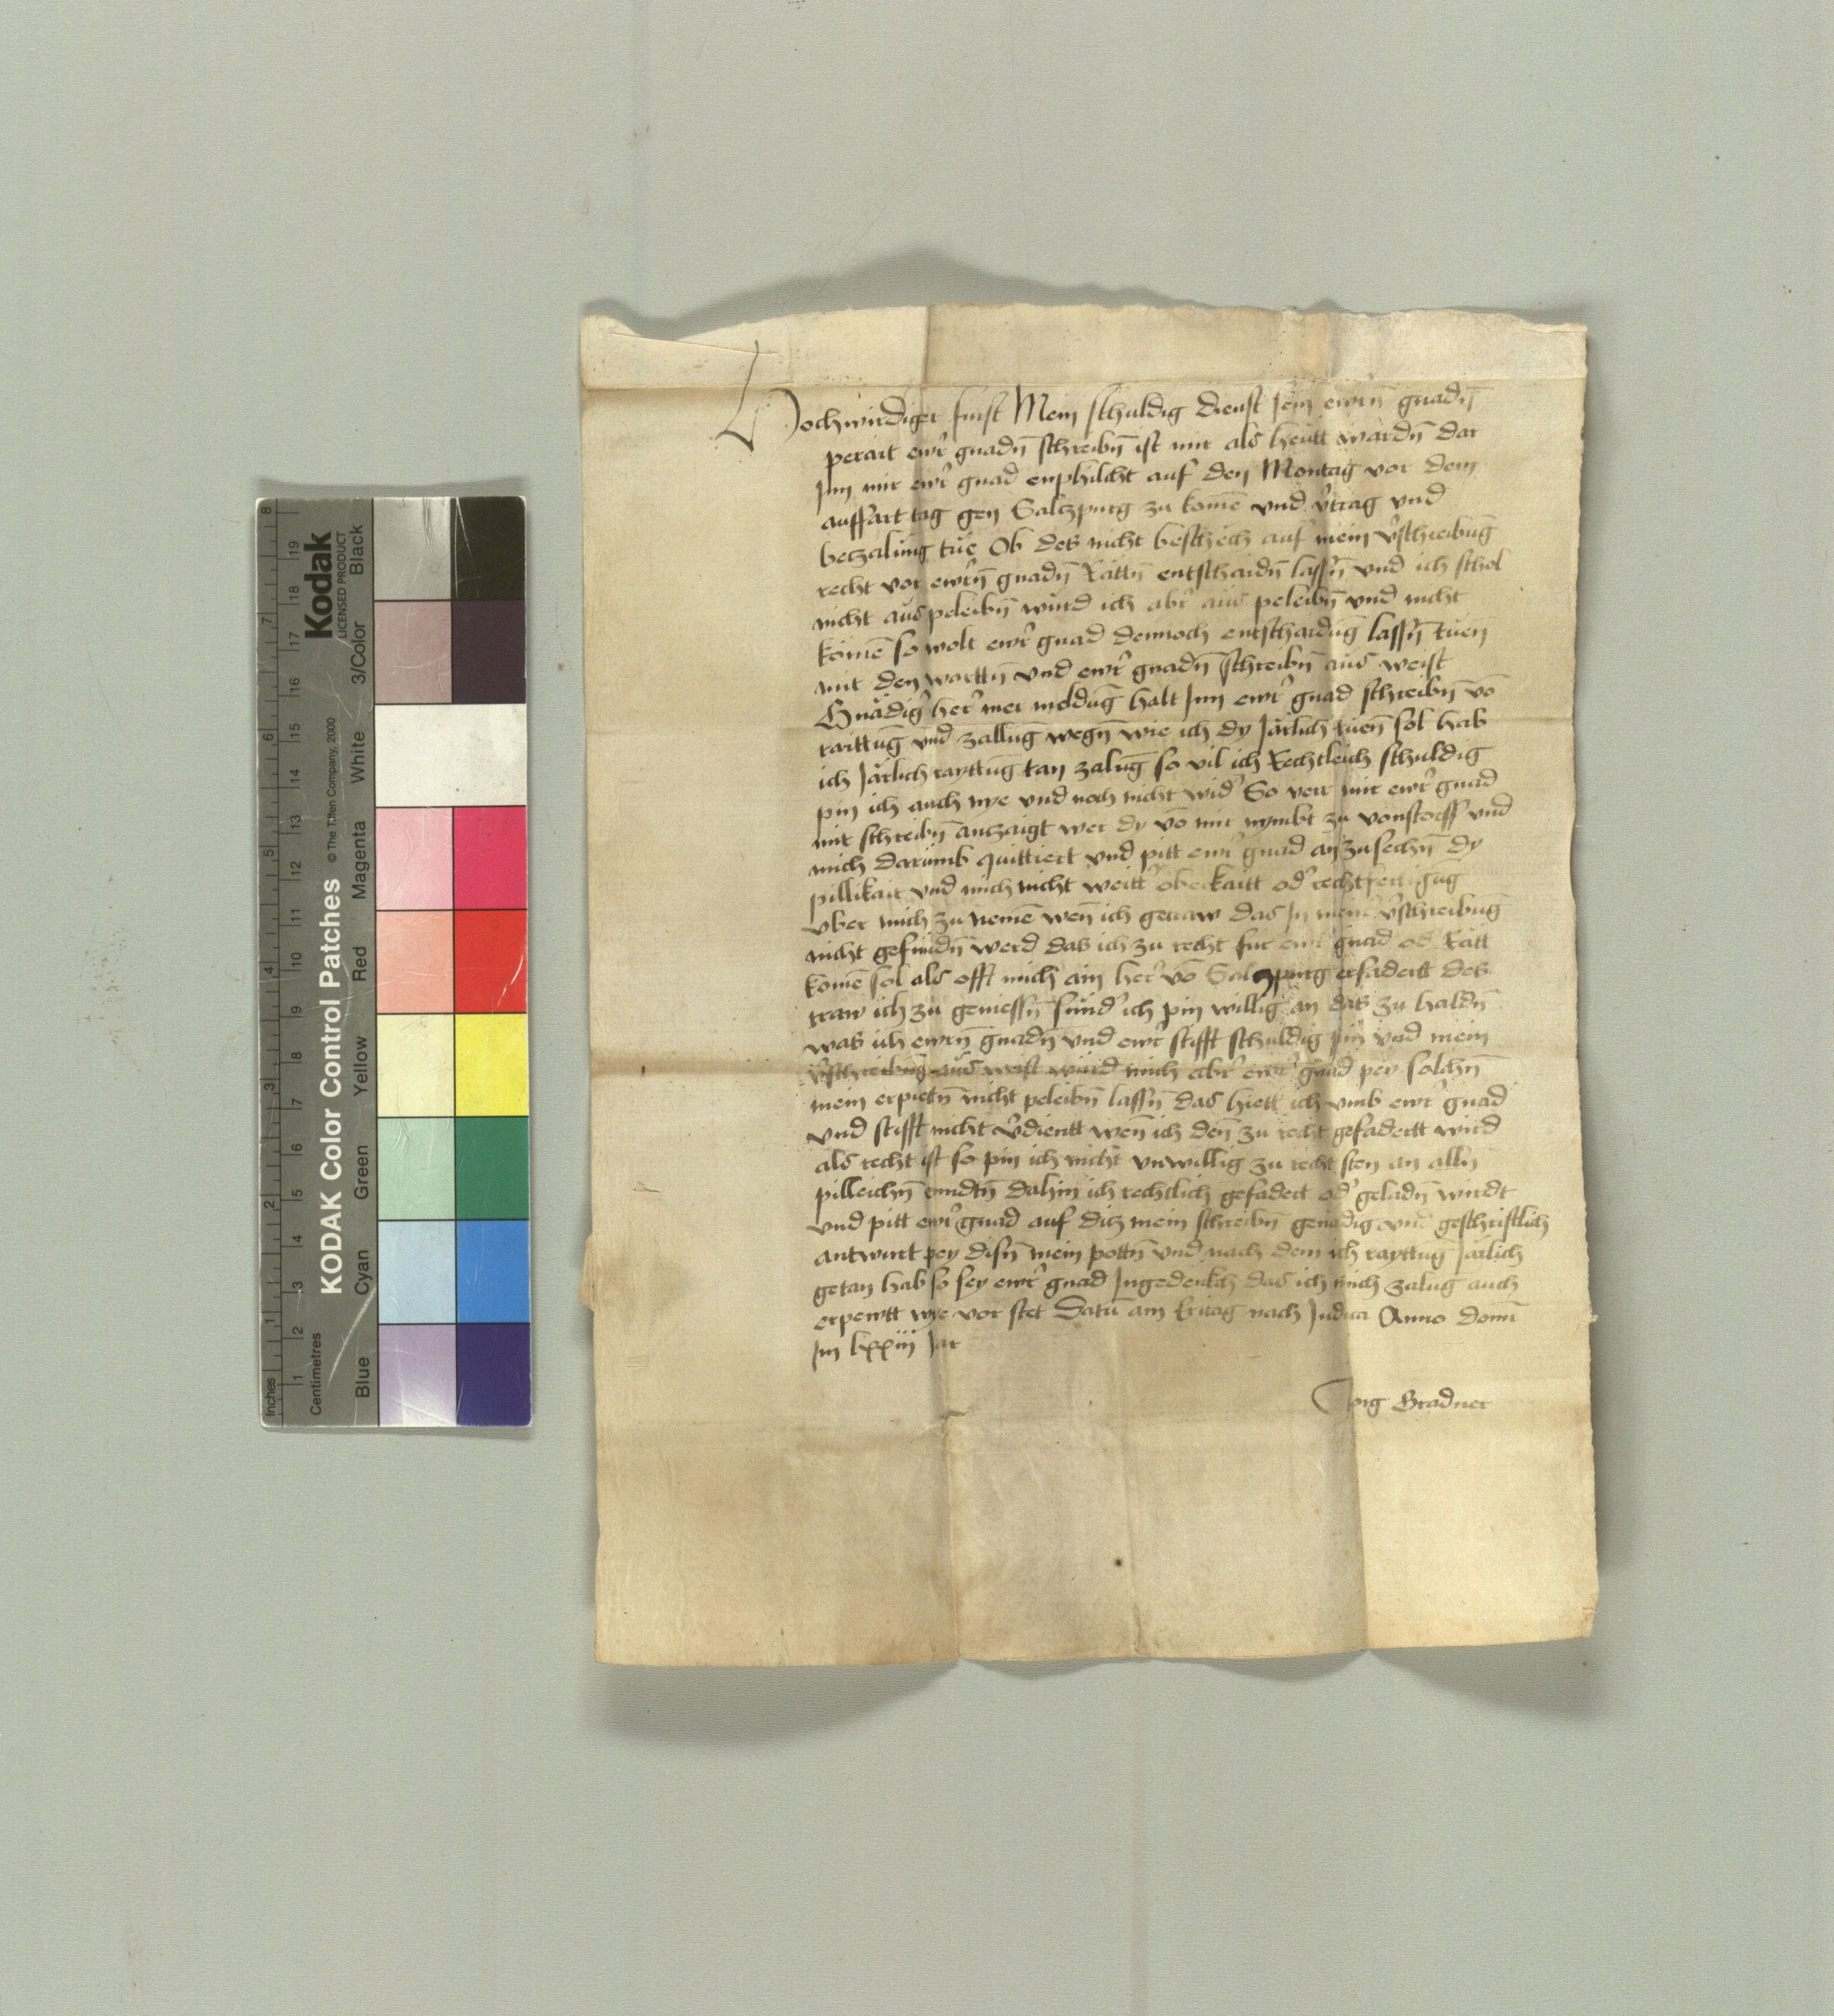 Hochwirdiger furst Mein schuldig dienst sein ewrn̄ gnadn̄
perait ewr̛ gnadn̄ schreibn̄ ist mir als heutt wardn̄ dar
Inn mir ewr̛ gnad enphilcht auf den Montag vor dem
auffart tag gen Salczpurg zu komē vnd v̛trag vnd
beczalung tue Ob des nicht beschech auf mein v̛schreibūg
recht vor ewrn̄ gnadn̄ Rattn̄ entschaidn̄ lassn̄ vnd ich schol
nicht aus peleibn̄ wurd ich abr̛ aus peleibn̄ vnd nicht
komē so wolt ewr̛ gnad dennoch entschaidūg lassn̄ tuen
mit den warttn̄ vnd ewr̛ gnadn̄ schreibn̄ aus weist
Gnadig̛ her̛ mer meldūg halt Inn ewr̛ gnad schreibn̄ vō
raittūg vnd zallūg wegn̄ wie ich dy Jarlich tuen̄ sol hab
ich Jarlich rayttūg tan zalūg so vil ich Rechtleich schuldig
pin ich auch nye vnd noch nicht wid̛ So verr mir ewr̛ gnad
mit schreibn̄ anczaigt wer dy vō mir nymbt zu vonstorff vnd
mich darumb quittiert vnd pitt ewr̛ gnad anzusechn̄ dy
pillikait vnd mich nicht weitt̛ oberkaitt od̛ rechtfertigūg
vber mich zu nemē wen̄ ich getraw das In meinr̛ v̛schreibūg
nicht gefundn̄ werd das ich zu recht fur ewr̛ gnad od̛ Rātt
komē sol als offt mich ain her̛ vō Salczpurg erfadertt des
traw ich zu geniessn̄ sund̛ ich pin willig an das zu haldn̄
was ich ewrn̄ gnadn̄ vnd ewr̛ stifft schuldig pin vnd mein
v̛schreibūg aus weist wurd mich abr̛ ewr̛ gnad pey solchn̄
mein erpietn̄ nicht peleibn̄ lassn̄ das hiett ich vmb ewr̛ gnad
vnd stifft nicht v̛dientt wen̄ ich den̄ zu recht gefadertt wird
als recht ist so pin ich nicht vnwillig zu recht sten an alln̄
pilleichn̄ endtn̄ dahin ich rechtlich gefadert od̛ geladn̄ wirdt
vnd pitt ewr̛ gnad auf dicz mein schreibn̄ genadig vnd geschriftlich
antwurt pey disn̄ mein pottn̄ vnd nach dem ich rayttūg Jarlich
getan hab so sey ewr̛ gnad Ingedenkch das ich mich zalūg auch
erpewtt wye vor stet Datū am Eritag nach Judica Anno domī
Im lxxiii Jar
Jorg Gradner
Kodak
LICENSED PRODUCT
KODAK Color Control Patches
© The Tiffen Company, 2000
Inches
Centimetres
Blue Cyan Green Yellow Red Magenta White 3/Color Black
1 2 3 4 5 6 7 8
1 2 3 4 5 6 7 8 9 10 11 12 13 14 15 16 17 18 19